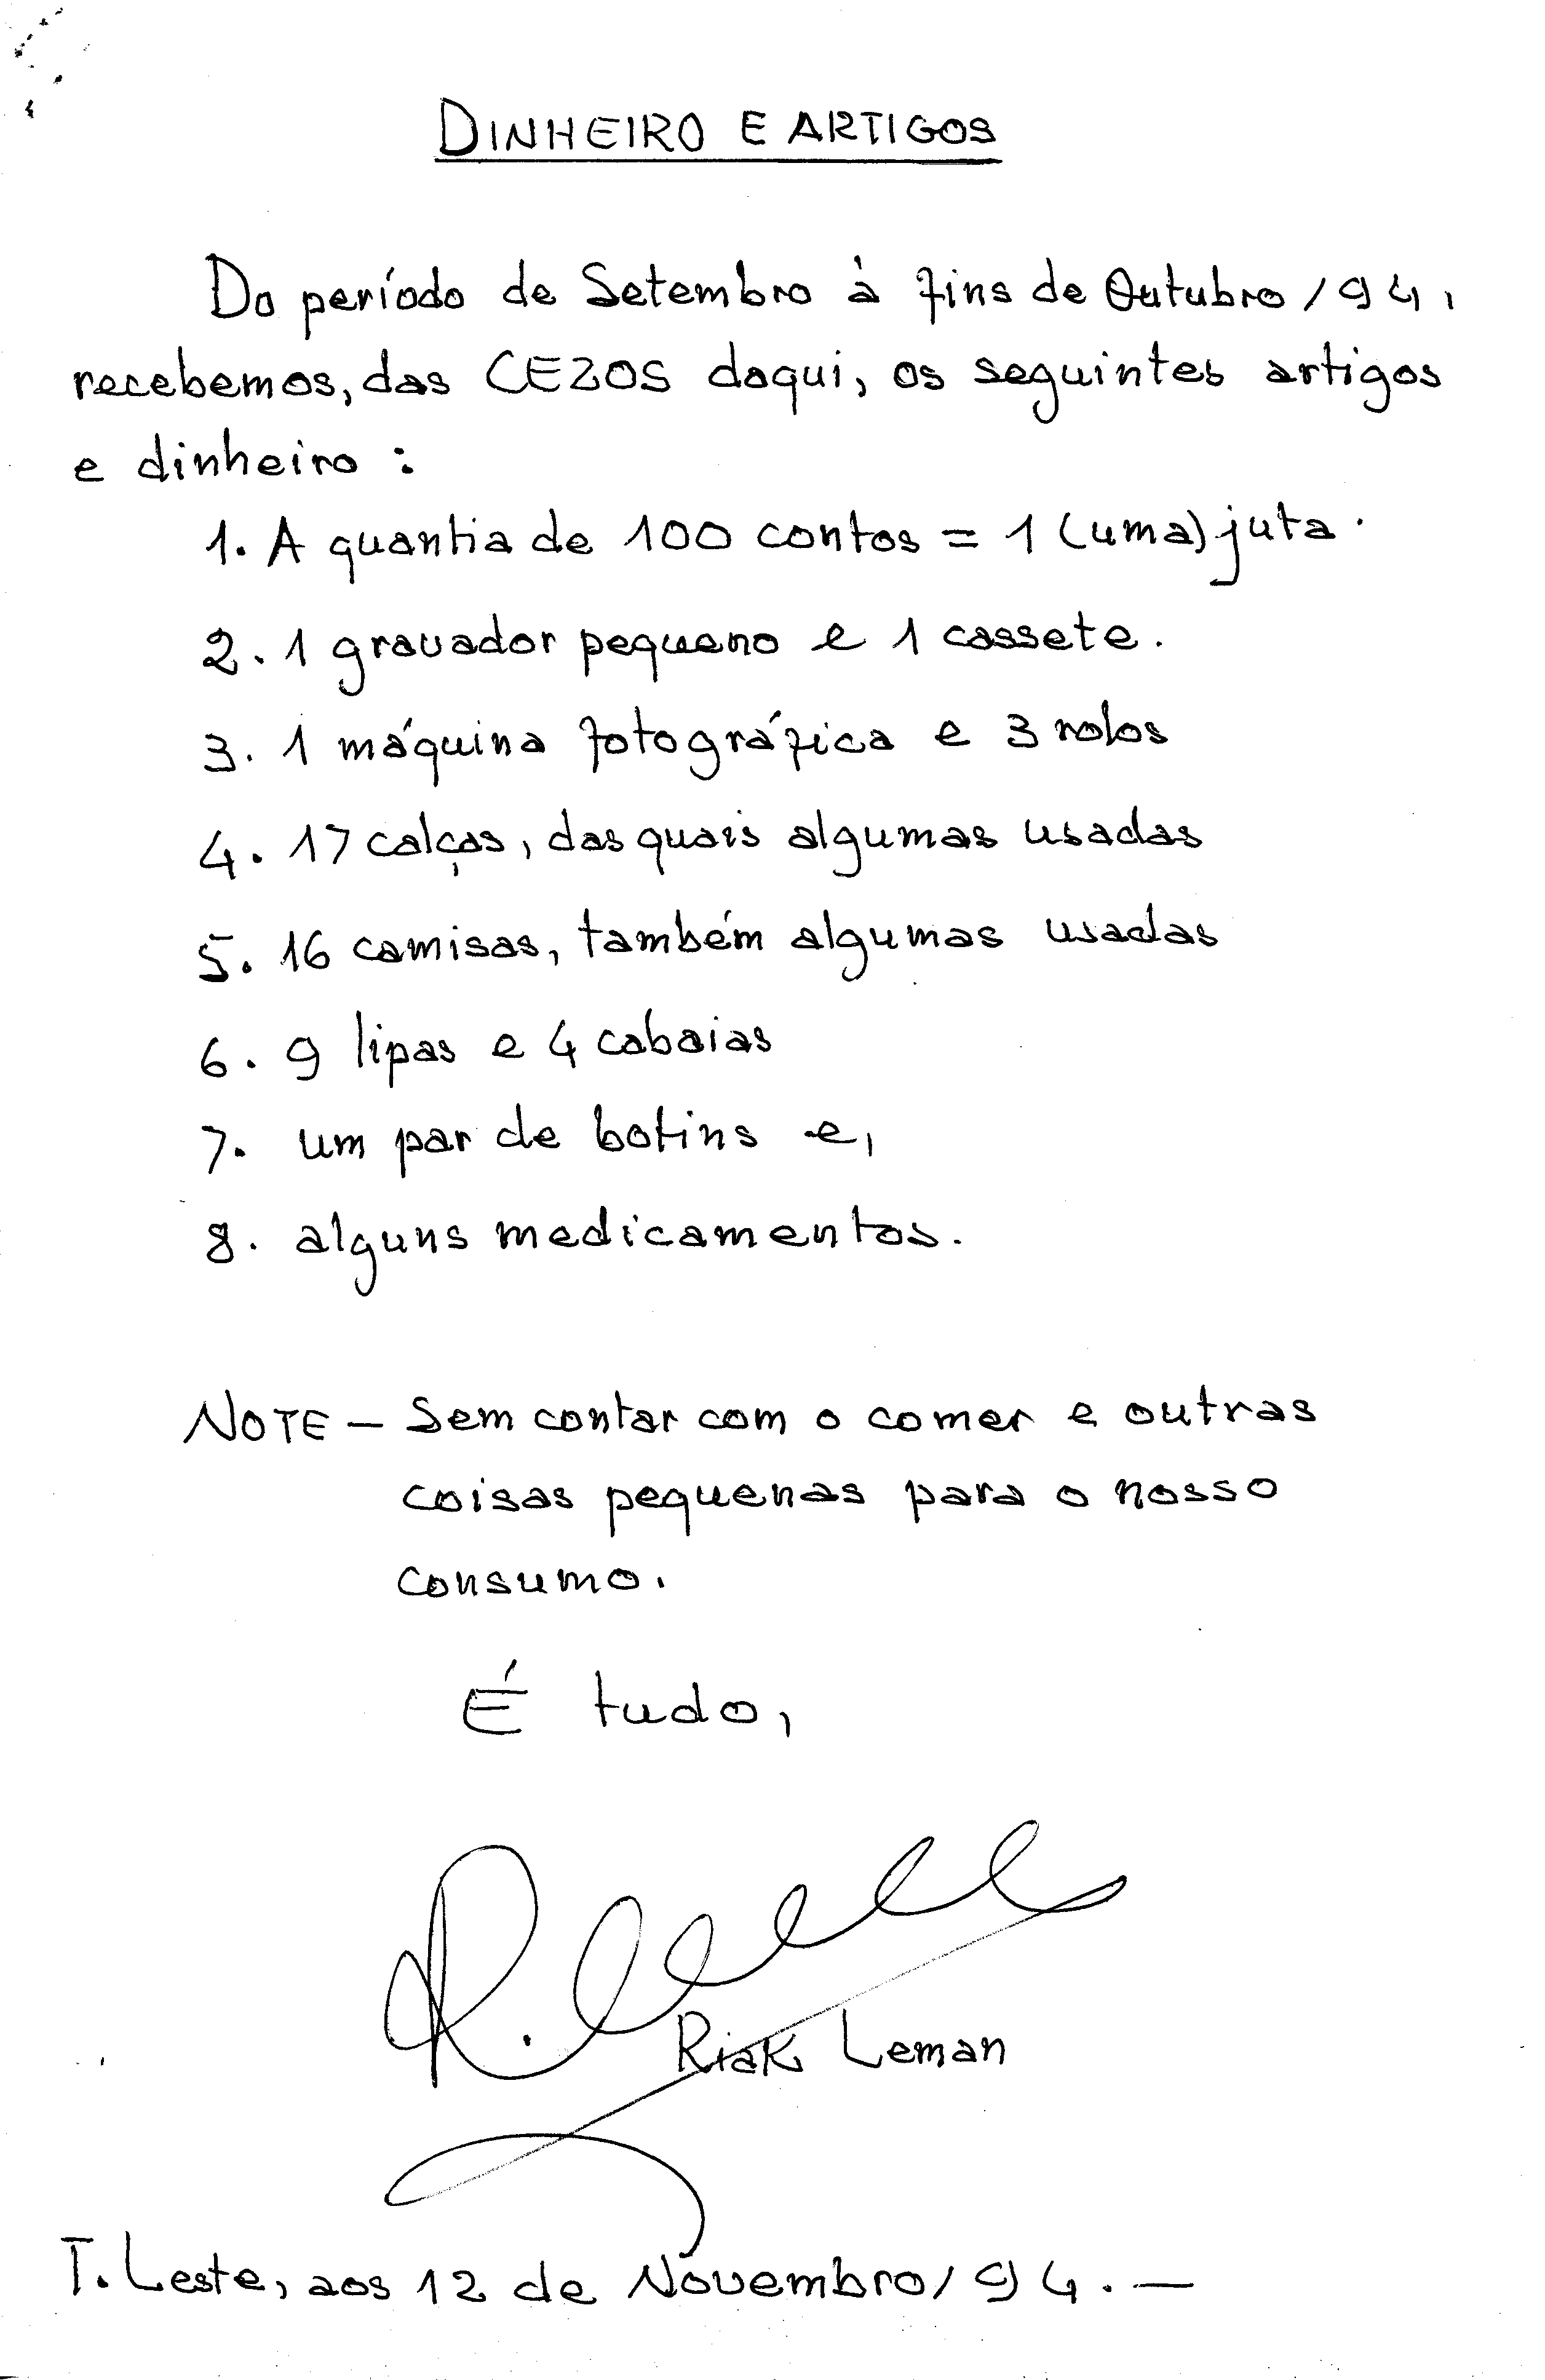 DINHEIRO E ARTIGOS
Do período de Setembro à fins de Outubro/94,
recebemos, das CEZOS daqui, os seguintes artigos
e dinheiro :
1. A quantia de 100 contos = 1 (uma) juta.
2. 1 gravador pequeno e 1 cassete.
3. 1 máquina fotográfica e 3 rolos
4. 17 calças, das quais algumas usadas
5. 16 camisas, também algumas usadas
6. 9 lipas e 4 cabaias
7. um par de botins e,
8. alguns medicamentos.
NOTE - Sem contar com o comer e outras
coisas pequenas para o nosso
consumo.
É tudo,
Riak Leman
T. Leste, aos 12 de Novembro/94. —